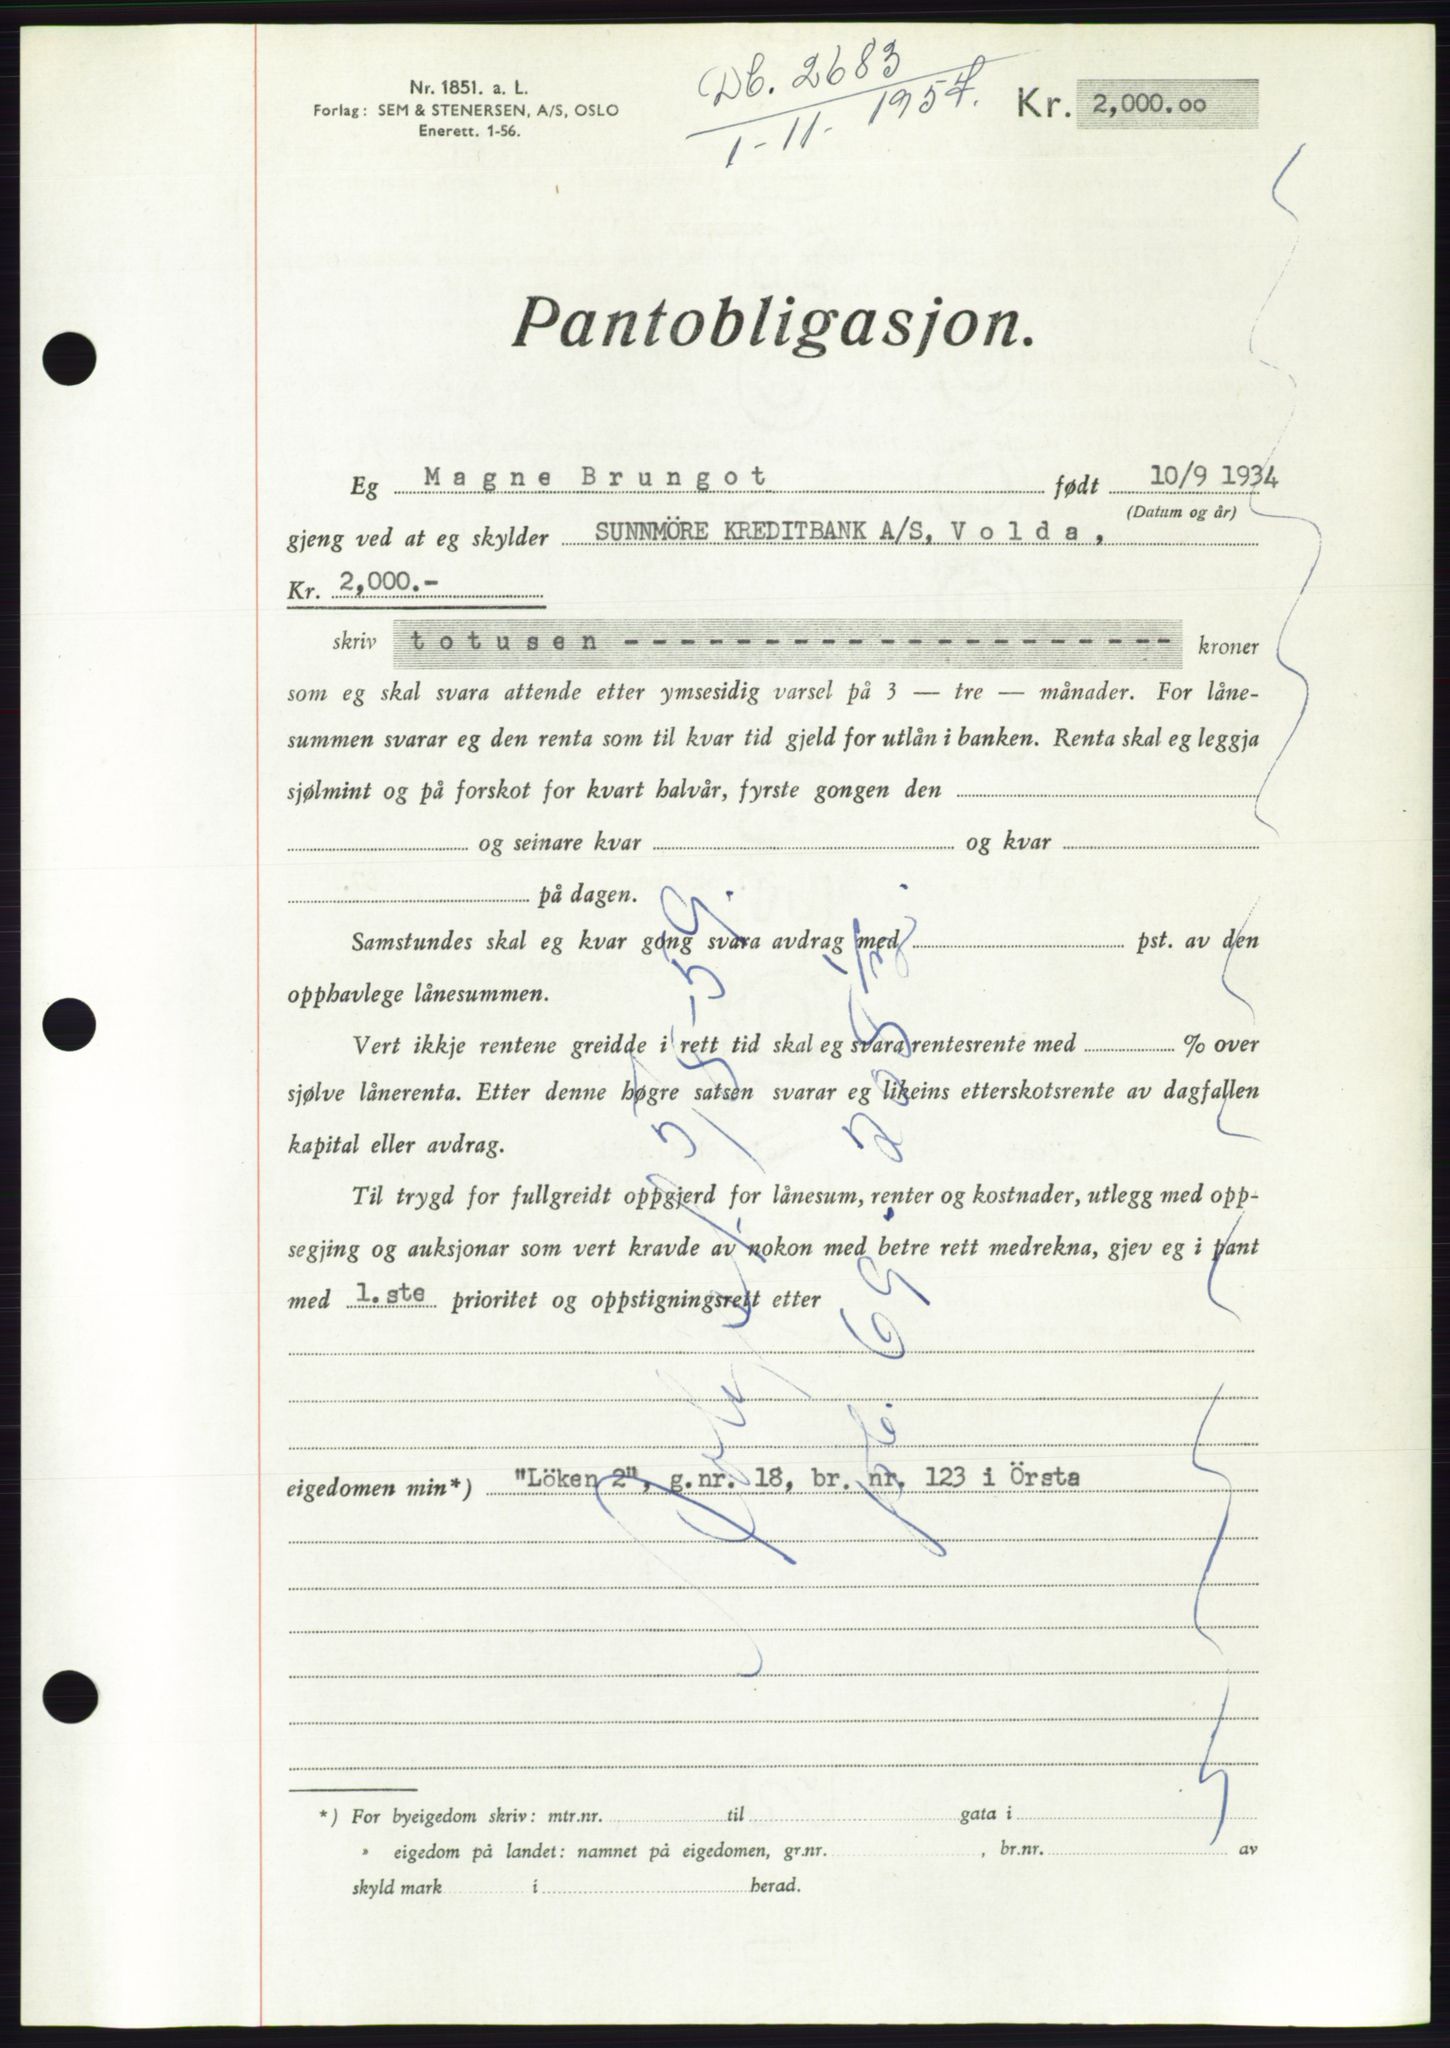 Nr. 1851. a. L.
Forlag: SEM & STENERSEN, A/S, OSLO
Enerett. 1-56.
Db. 2683
1-11- 1957.
Kr. 2,000.oo
Pantobligasjon.
Eg Magne Brungot født 10/9 1934
(Datum og år)
gjeng ved at eg skylder SUNNMÖRE KREDITBANK A/S, Volda,
Kr. 2,000.-
skriv totusen - - - - - - - - - - - - - - - - - - - kroner
som eg skal svara attende etter ymsesidig varsel på 3 — tre — månader. For låne-
summen svarar eg den renta som til kvar tid gjeld for utlån i banken. Renta skal eg leggja
sjølmint og på forskot for kvart halvår, fyrste gongen den
og seinare kvar og kvar
på dagen.
Samstundes skal eg kvar gong svara avdrag med pst. av den
opphavlege lånesummen.
Vert ikkje rentene greidde i rett tid skal eg svara rentesrente med % over
sjølve lånerenta. Etter denne høgre satsen svarar eg likeins etterskotsrente av dagfallen
kapital eller avdrag.
Til trygd for fullgreidt oppgjerd for lånesum, renter og kostnader, utlegg med opp-
segjing og auksjonar som vert kravde av nokon med betre rett medrekna, gjev eg i pant
med 1.ste prioritet og oppstigningsrett etter
eigedomen min*) "Löken 2", g.nr. 18, br. nr. 123 i Örsta
*) For byeigedom skriv: mtr.nr. til gata i
» eigedom på landet: namnet på eigedomen, gr.nr. , br.nr. av
skyld mark i herad.